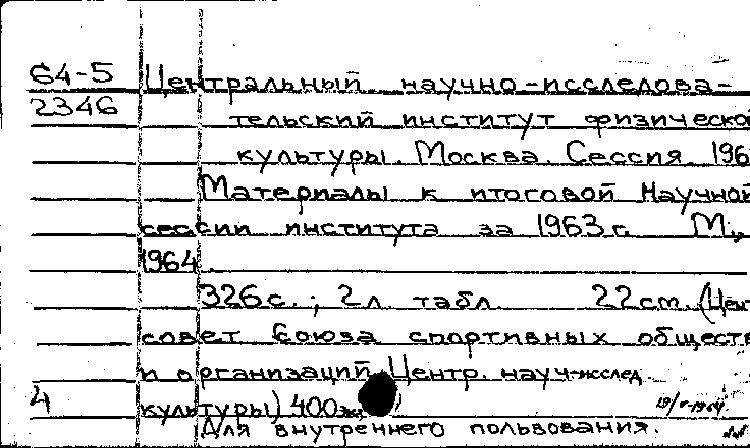 64-5 Центральный научно-исследова-
2346 тельский институт физическо
культуры. Москва. Сессия. 196
Материалы к итоговой научной
сессии института за 1963 г. М.,
1964.
326 с.; 2 л. табл. 22 см. (Цен
совет Союза спортивных обществ
и организаций. Центр. науч-исслед.
4 культуры) 400
Для внутреннего пользования.